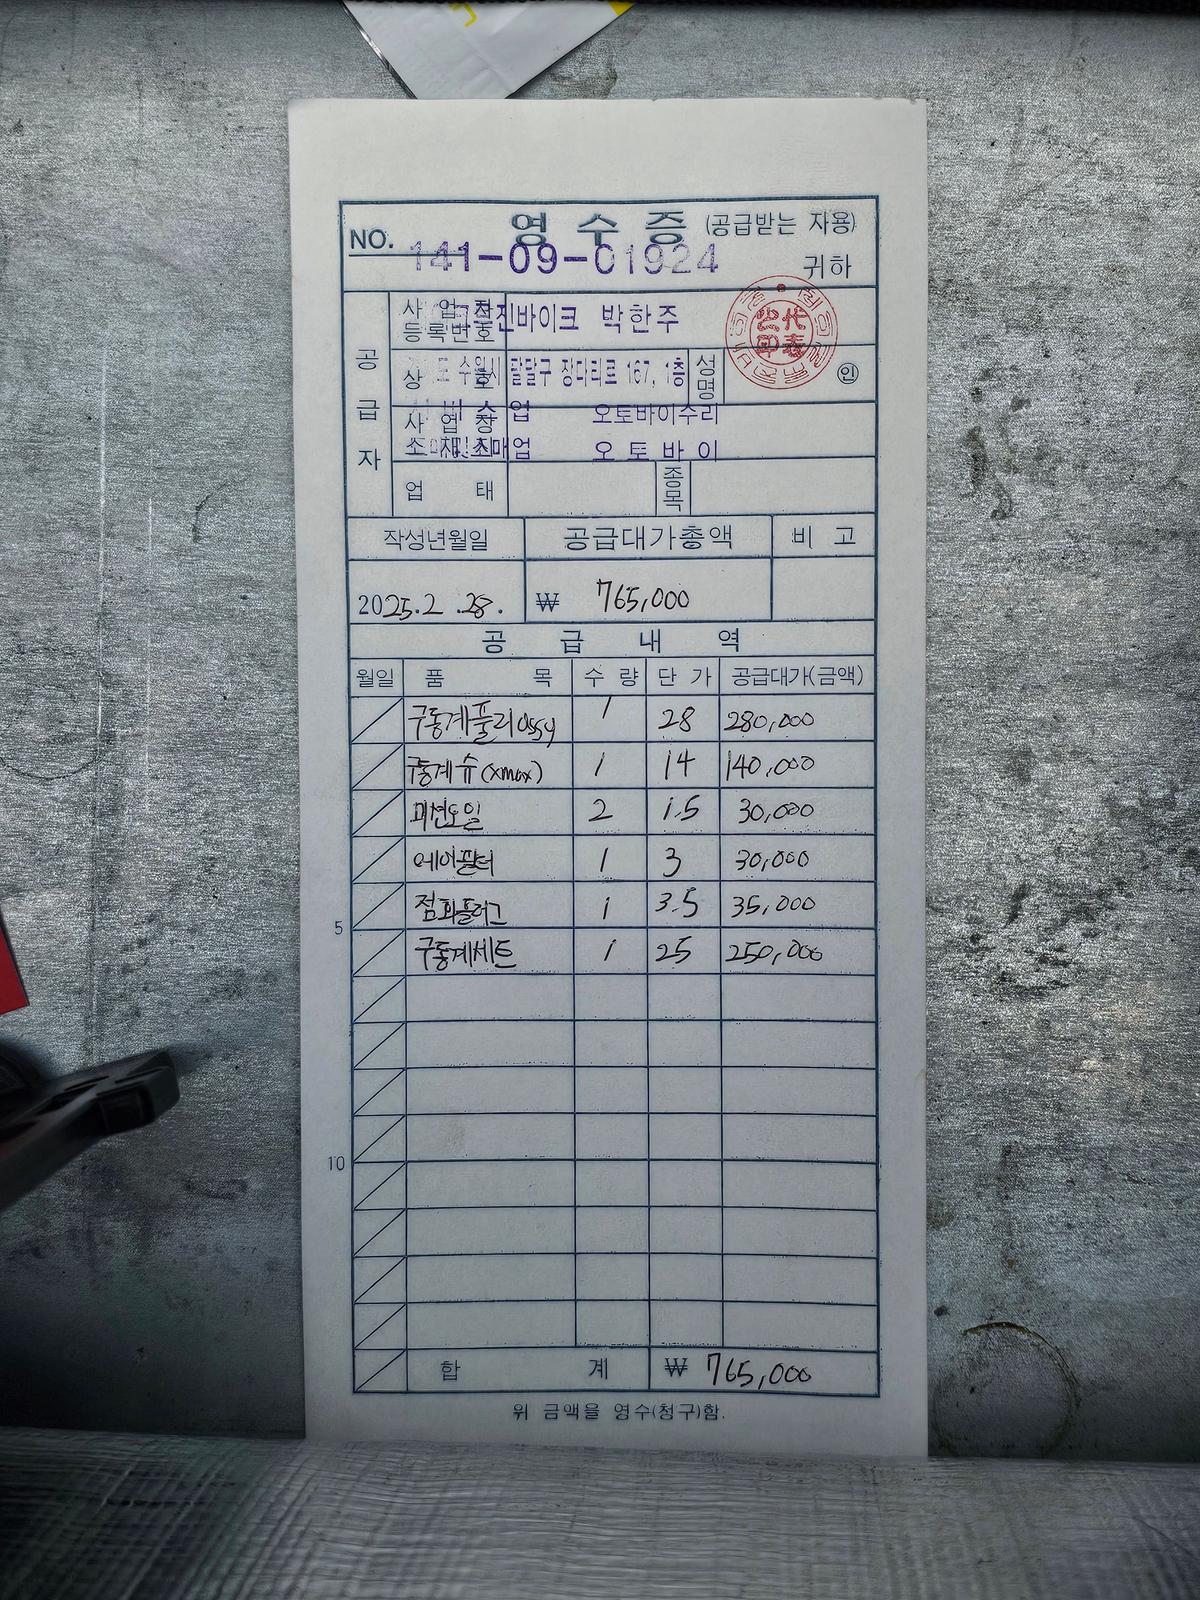 영 수 증 (공급받는 자용)
NO. 141-09-01924 귀하
공급자
사업자등록번호
진바이크 박한주
상호 수원시 팔달구 장다리로 167, 1층 성명 인
사업장 업 오토바이수리
소 매업 오토바이
업 태 종목
작성년월일 공급대가총액 비 고
2025.2.28. ₩ 765,000
공 급 내 역
월일 품 목 수 량 단 가 공급대가(금액)
구동계풀리 assy 1 28 280,000
구동계 슈 (xmax) 1 14 140,000
미션오일 2 1.5 30,000
에어필터 1 3 30,000
점화플러그 1 3.5 35,000
5
구동계세트 1 25 250,000
10
합 계 ₩ 765,000
위 금액을 영수(청구)함.